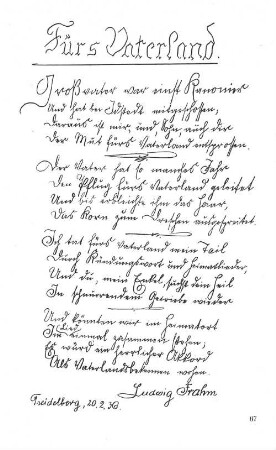 Fürs Vaterland.
Großvater war einst Kanonier
Und hat bei Idstedt mitgeschossen,
Daraus ist mir, und Sohn auch dir
Der Mut fürs Vaterland entsprossen.
Der Vater hat so manches Jahr
Den Pflug fürs Vaterland geleitet
Und bis erbleichte ihm das Haar,
Das Korn zum Dreschen ausgebreitet.
Ich tat fürs Vaterland mein Teil
Durch Kündungswort und Heimatlieder,
Und du, mein Enkel, suchst dein Heil
In scheuerndem Getriebe wieder
Und könnten wir im Heimatort
Im Lied einmal zusammen stehen,
Es würd ein herrlicher Akkord
Als Vaterlandsbekennen wehen.
Ludwig Frahm
20.2.36.
67